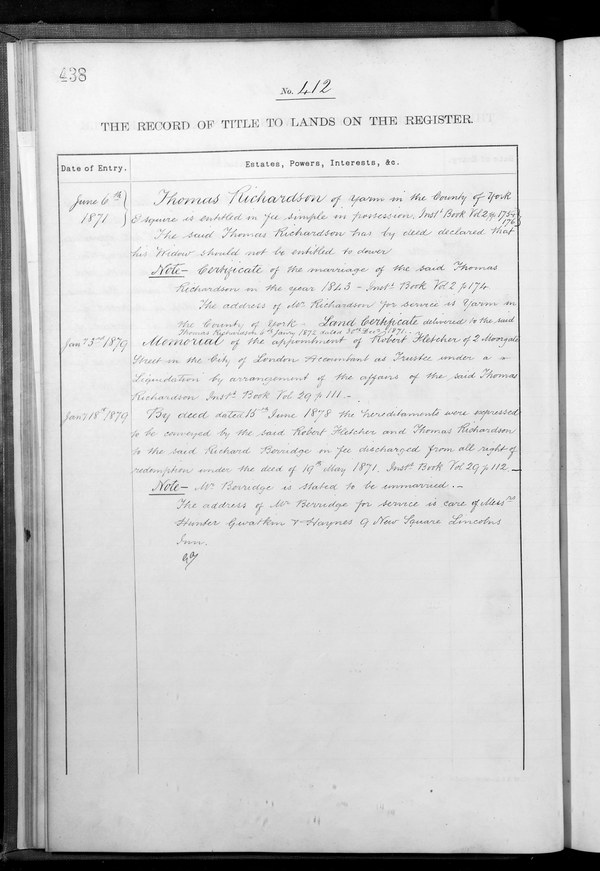 438
No. 412
THE RECORD OF TITLE TO LANDS ON THE REGISTER.
Date of Entry.
Estates, Powers, Interests, &c.
June 6th 1871
Thomas Richardson of Yarm in the County of York
Esquire is entitled in fee simple in possession. Instt Book Vol 2 p
The said Thomas Richardson has by deed declared that
his Widow should not be entitled to dower
Note - Certificate of the marriage of the said Thomas
Richardson in the year 1843 - Instt Book Vol 2 p 174
The address of Mr Richardson for service is Yarm in
the County of York. Land Certificate delivered to the said
Thomas Richardson 6th Jany 1872 dated 30th Decr 1871.
Jany 3rd 1879
Memorial of the appointment of Robert Fletcher of 2 Moorgate
Street in the City of London Accountant as Trustee under a
Liquidation by arrangement of the affairs of the said Thomas
Richardson Instt Book Vol 29 p 111. -
Jany 18th 1879
By deed dated 15th June 1878 the hereditaments were expressed
to be conveyed by the said Robert Fletcher and Thomas Richardson
to the said Richard Berridge in fee discharged from all right of
redemption under the deed of 19th May 1871. Instt Book Vol 29 p 112. -
Note - Mr Berridge is stated to be unmarried. -
The address of Mr Berridge for service is care of Messrs
Hunter Gwatkin & Haynes 9 New Square Lincolns
Inn.